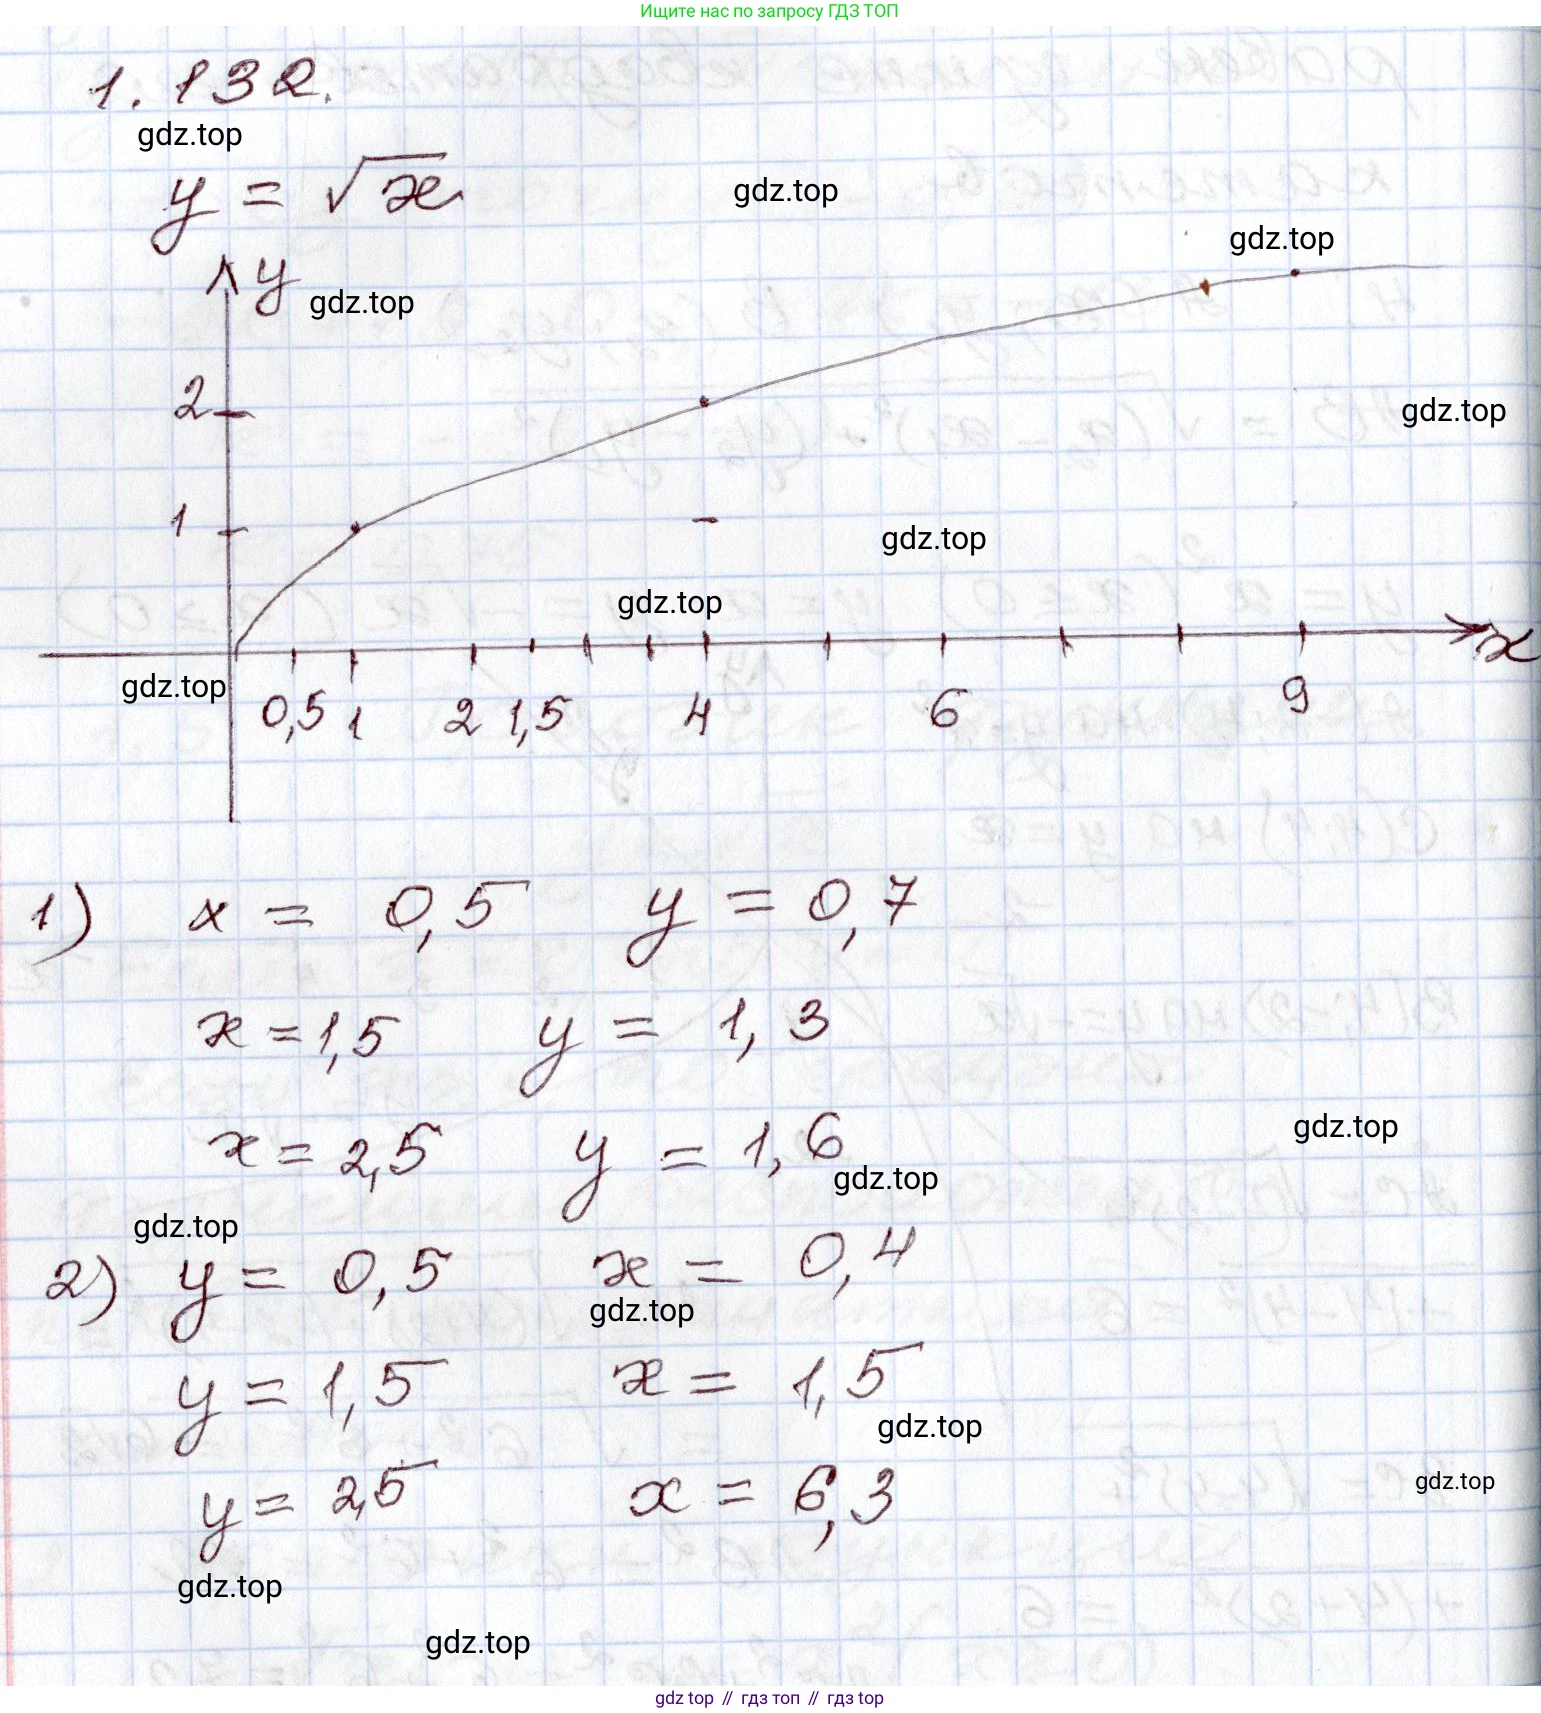 Ищите нас по запросу ГДЗ ТОП
1.132.
gdz.top
y = √x
gdz.top
gdz.top
y
gdz.top
2
gdz.top
1
gdz.top
gdz.top
x
gdz.top
0,5 1 2 1,5 4 6 9
1) x = 0,5 y = 0,7
x = 1,5 y = 1,3
gdz.top
x = 2,5 y = 1,6
gdz.top
gdz.top
2) y = 0,5 x = 0,4
gdz.top
y = 1,5 x = 1,5
gdz.top
gdz.top
y = 2,5 x = 6,3
gdz.top
gdz.top
gdz top // гдз топ // гдз top